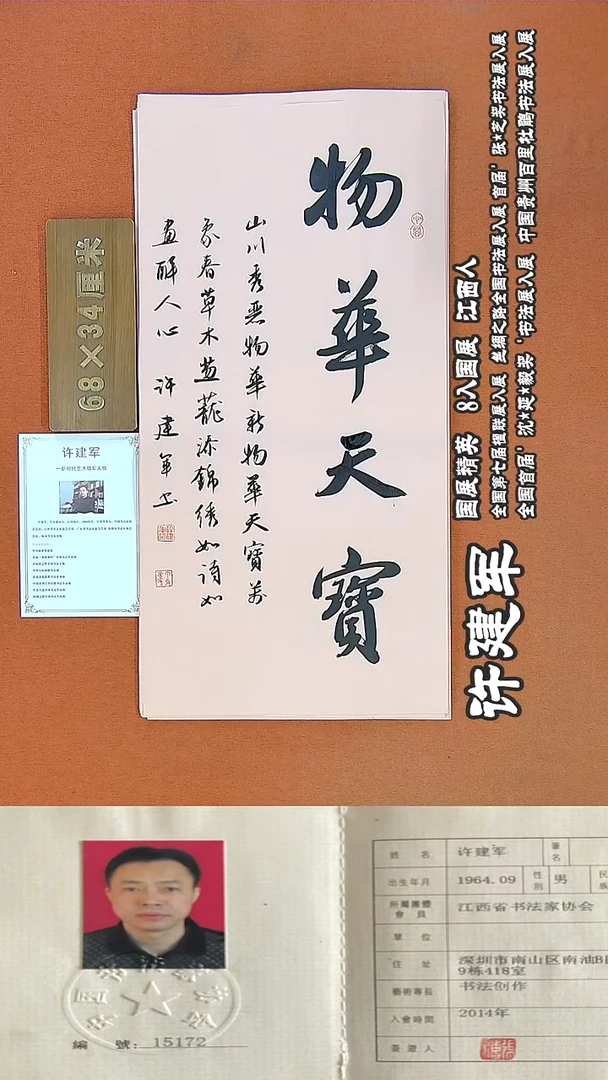 物華天寶
山川秀物華新物華天寶萬
象春草木葱蘢添錦绣如诗如
画醉人心 许建军书
68×34厘米
许建军
—新时代艺术领军人物
许建军
国展精英 8入国展 江西人
全国第七届楹联展入展 丝绸之路全国书法展入展 首届'张★芝奖书法展入展
全国首届'沈★延★毅奖'书法展入展 中国贵州百里杜鹃书法展入展
編 號:15172
姓 名 许建军 筆名
出生年月 1964.09 性別 男 民族
所屬團體會員 江西省书法家协会
單 位
住 址 深圳市南山区南油B区
9栋418室
藝術專長 书法创作
入會時間 2014年
簽證人